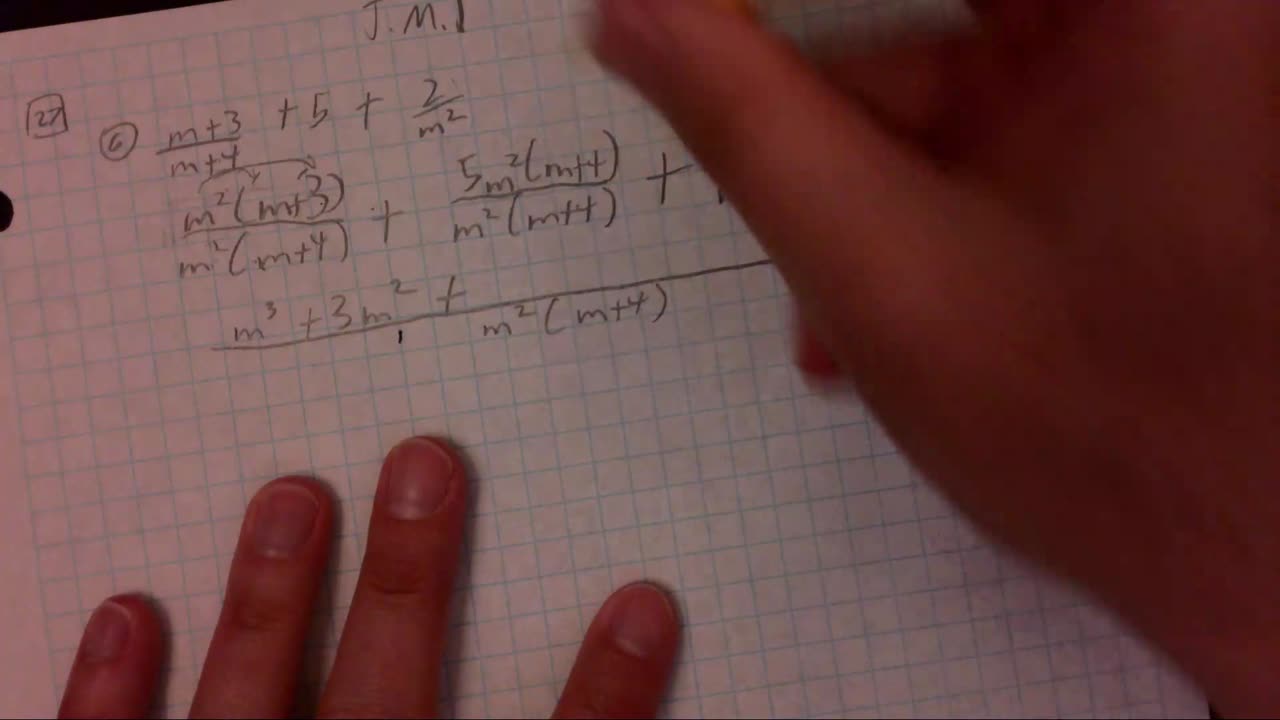 J.M.J
27 6 (m+3)/(m+4) + 5 + 2/m²
m²(m+3)/m²(m+4) + 5m²(m+4)/m²(m+4) +
m³ + 3m² +
m²(m+4)